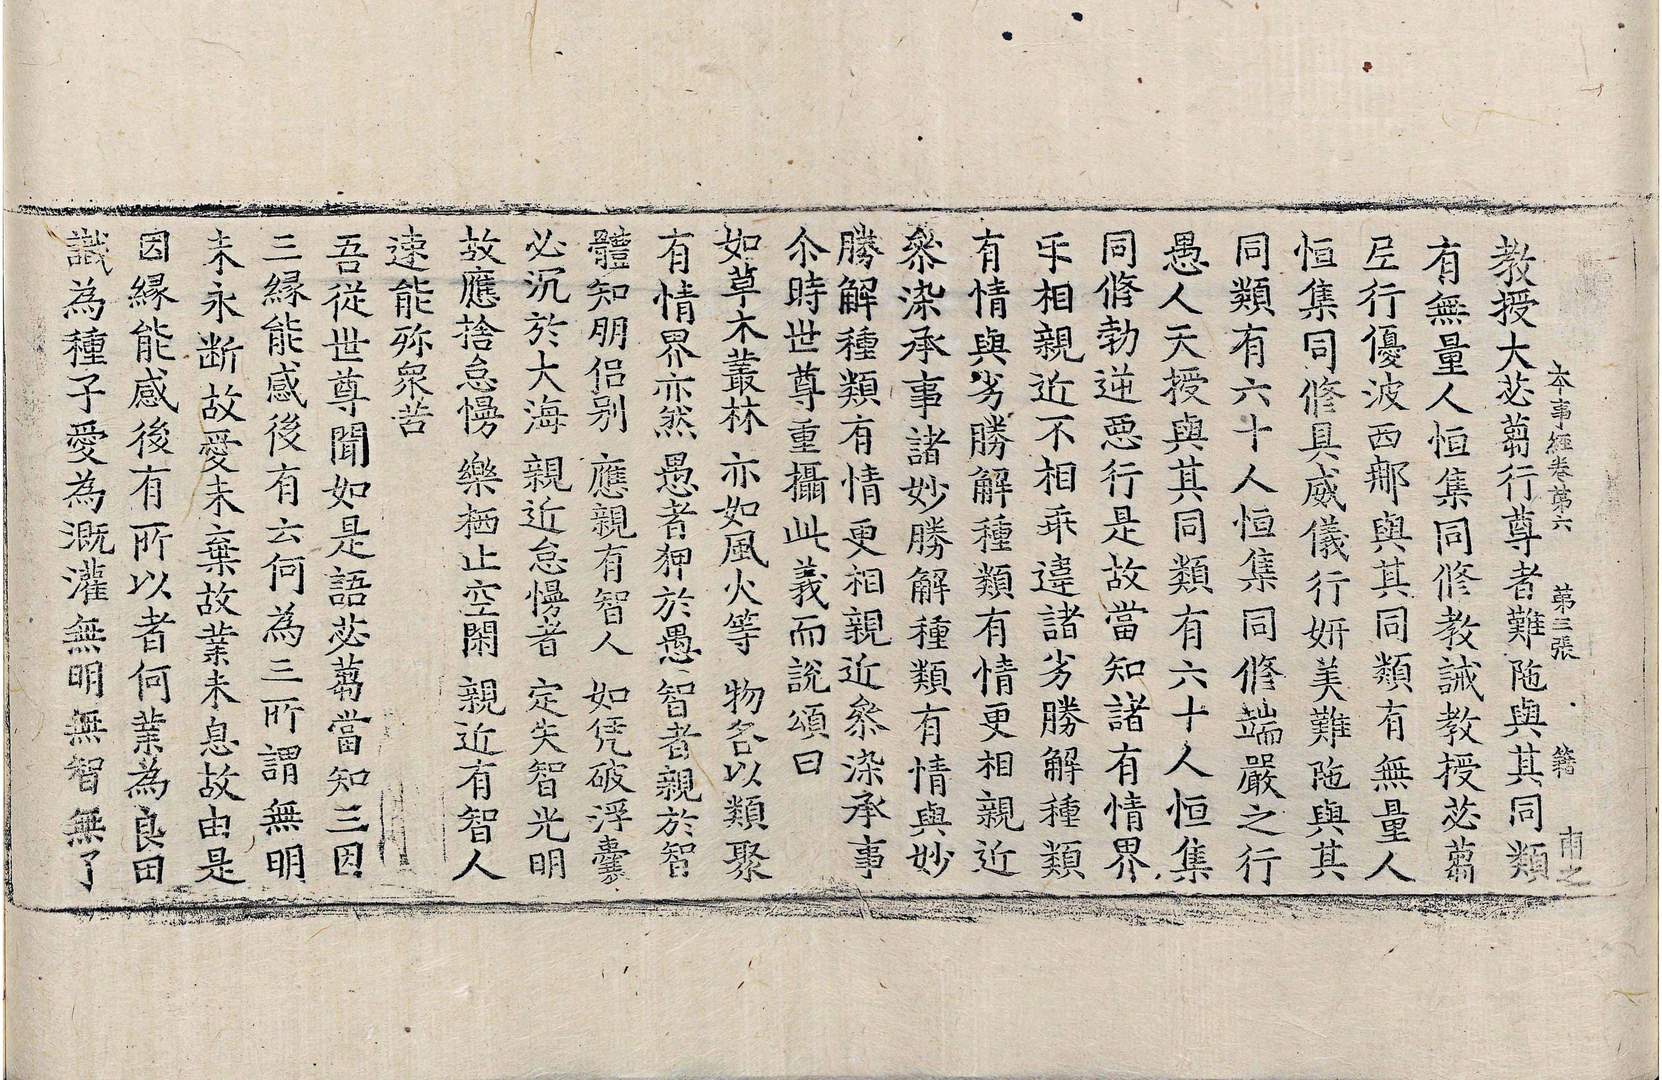 本事經卷第六　第三張　籍　甫之
教授大苾蒭行尊者難陁與其同類
有無量人恒集同修教誡教授苾蒭
尼行優波西那與其同類有無量人
恒集同修具威儀行妍美難陁與其
同類有六十人恒集同修端嚴之行
愚人天授與其同類有六十人恒集
同修勃逆惡行是故當知諸有情界
乐相親近不相乖違諸劣勝解種類
有情與劣勝解種類有情更相親近
叅染承事諸妙勝解種類有情與妙
勝解種類有情更相親近叅染承事
尒時世尊重攝此義而說頌曰
如草木叢林　亦如風火等　物各以類聚
有情界亦然　愚者狎於愚　智者親於智
體知朋侣别　應親有智人　如凭破浮囊
必沉於大海　親近怠慢者　定失智光明
故應捨怠慢　樂栖止空閑　親近有智人
速能殄衆苦
吾從世尊聞如是語苾蒭當知三因
三縁能感後有云何為三所謂無明
未永断故愛未棄故業未息故由是
因縁能感後有所以者何業為良田
識為種子愛為溉灌無明無智無了